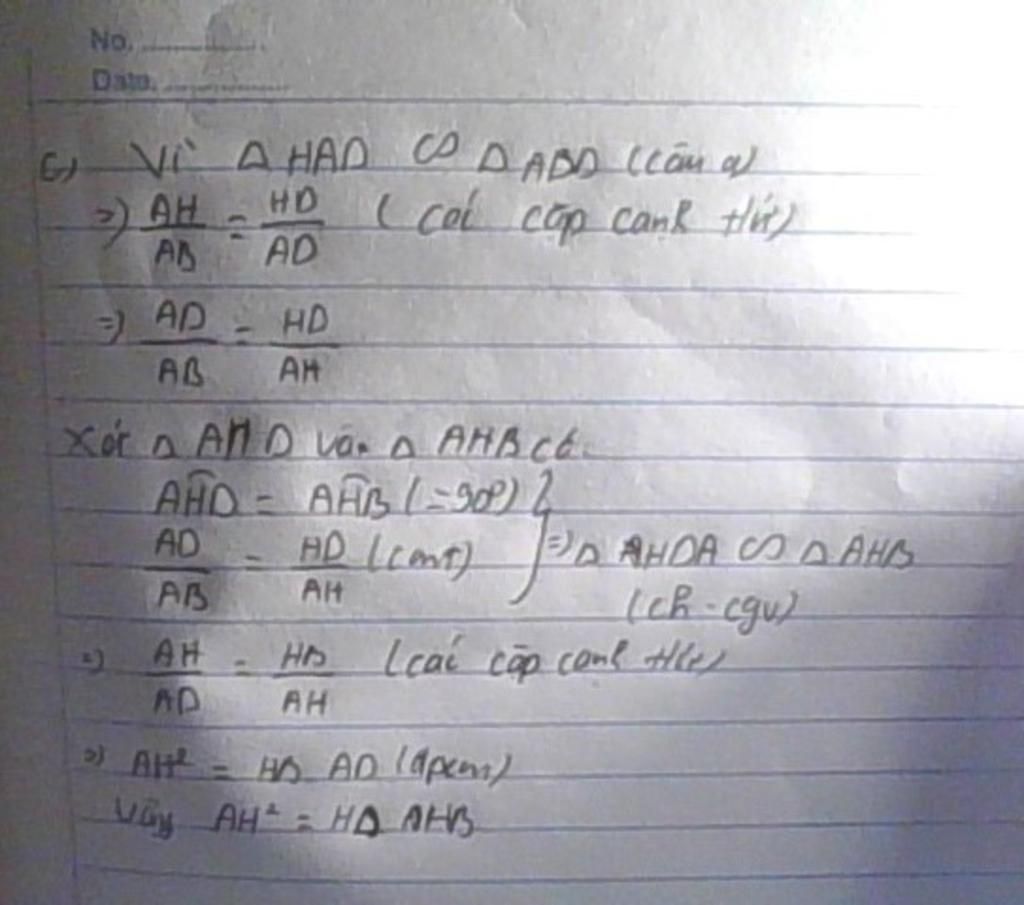 No.
Date.
c) Vì Δ HAD ∽ Δ ABD (câu a)
=) AH/AB = HD/AD (các cặp cạnh t/ứ)
=) AD/AB = HD/AH
Xét Δ AHD và Δ AHB có.
AHD = AHB (=90°)
AD/AB = HD/AH (cmt) } =) Δ AHDA ∽ Δ AHB
(ch - cgv)
=) AH/AD = HB/AH (các cặp cạnh t/ứ)
=) AH² = HB AD (đpcm)
Vậy AH² = HD AHB